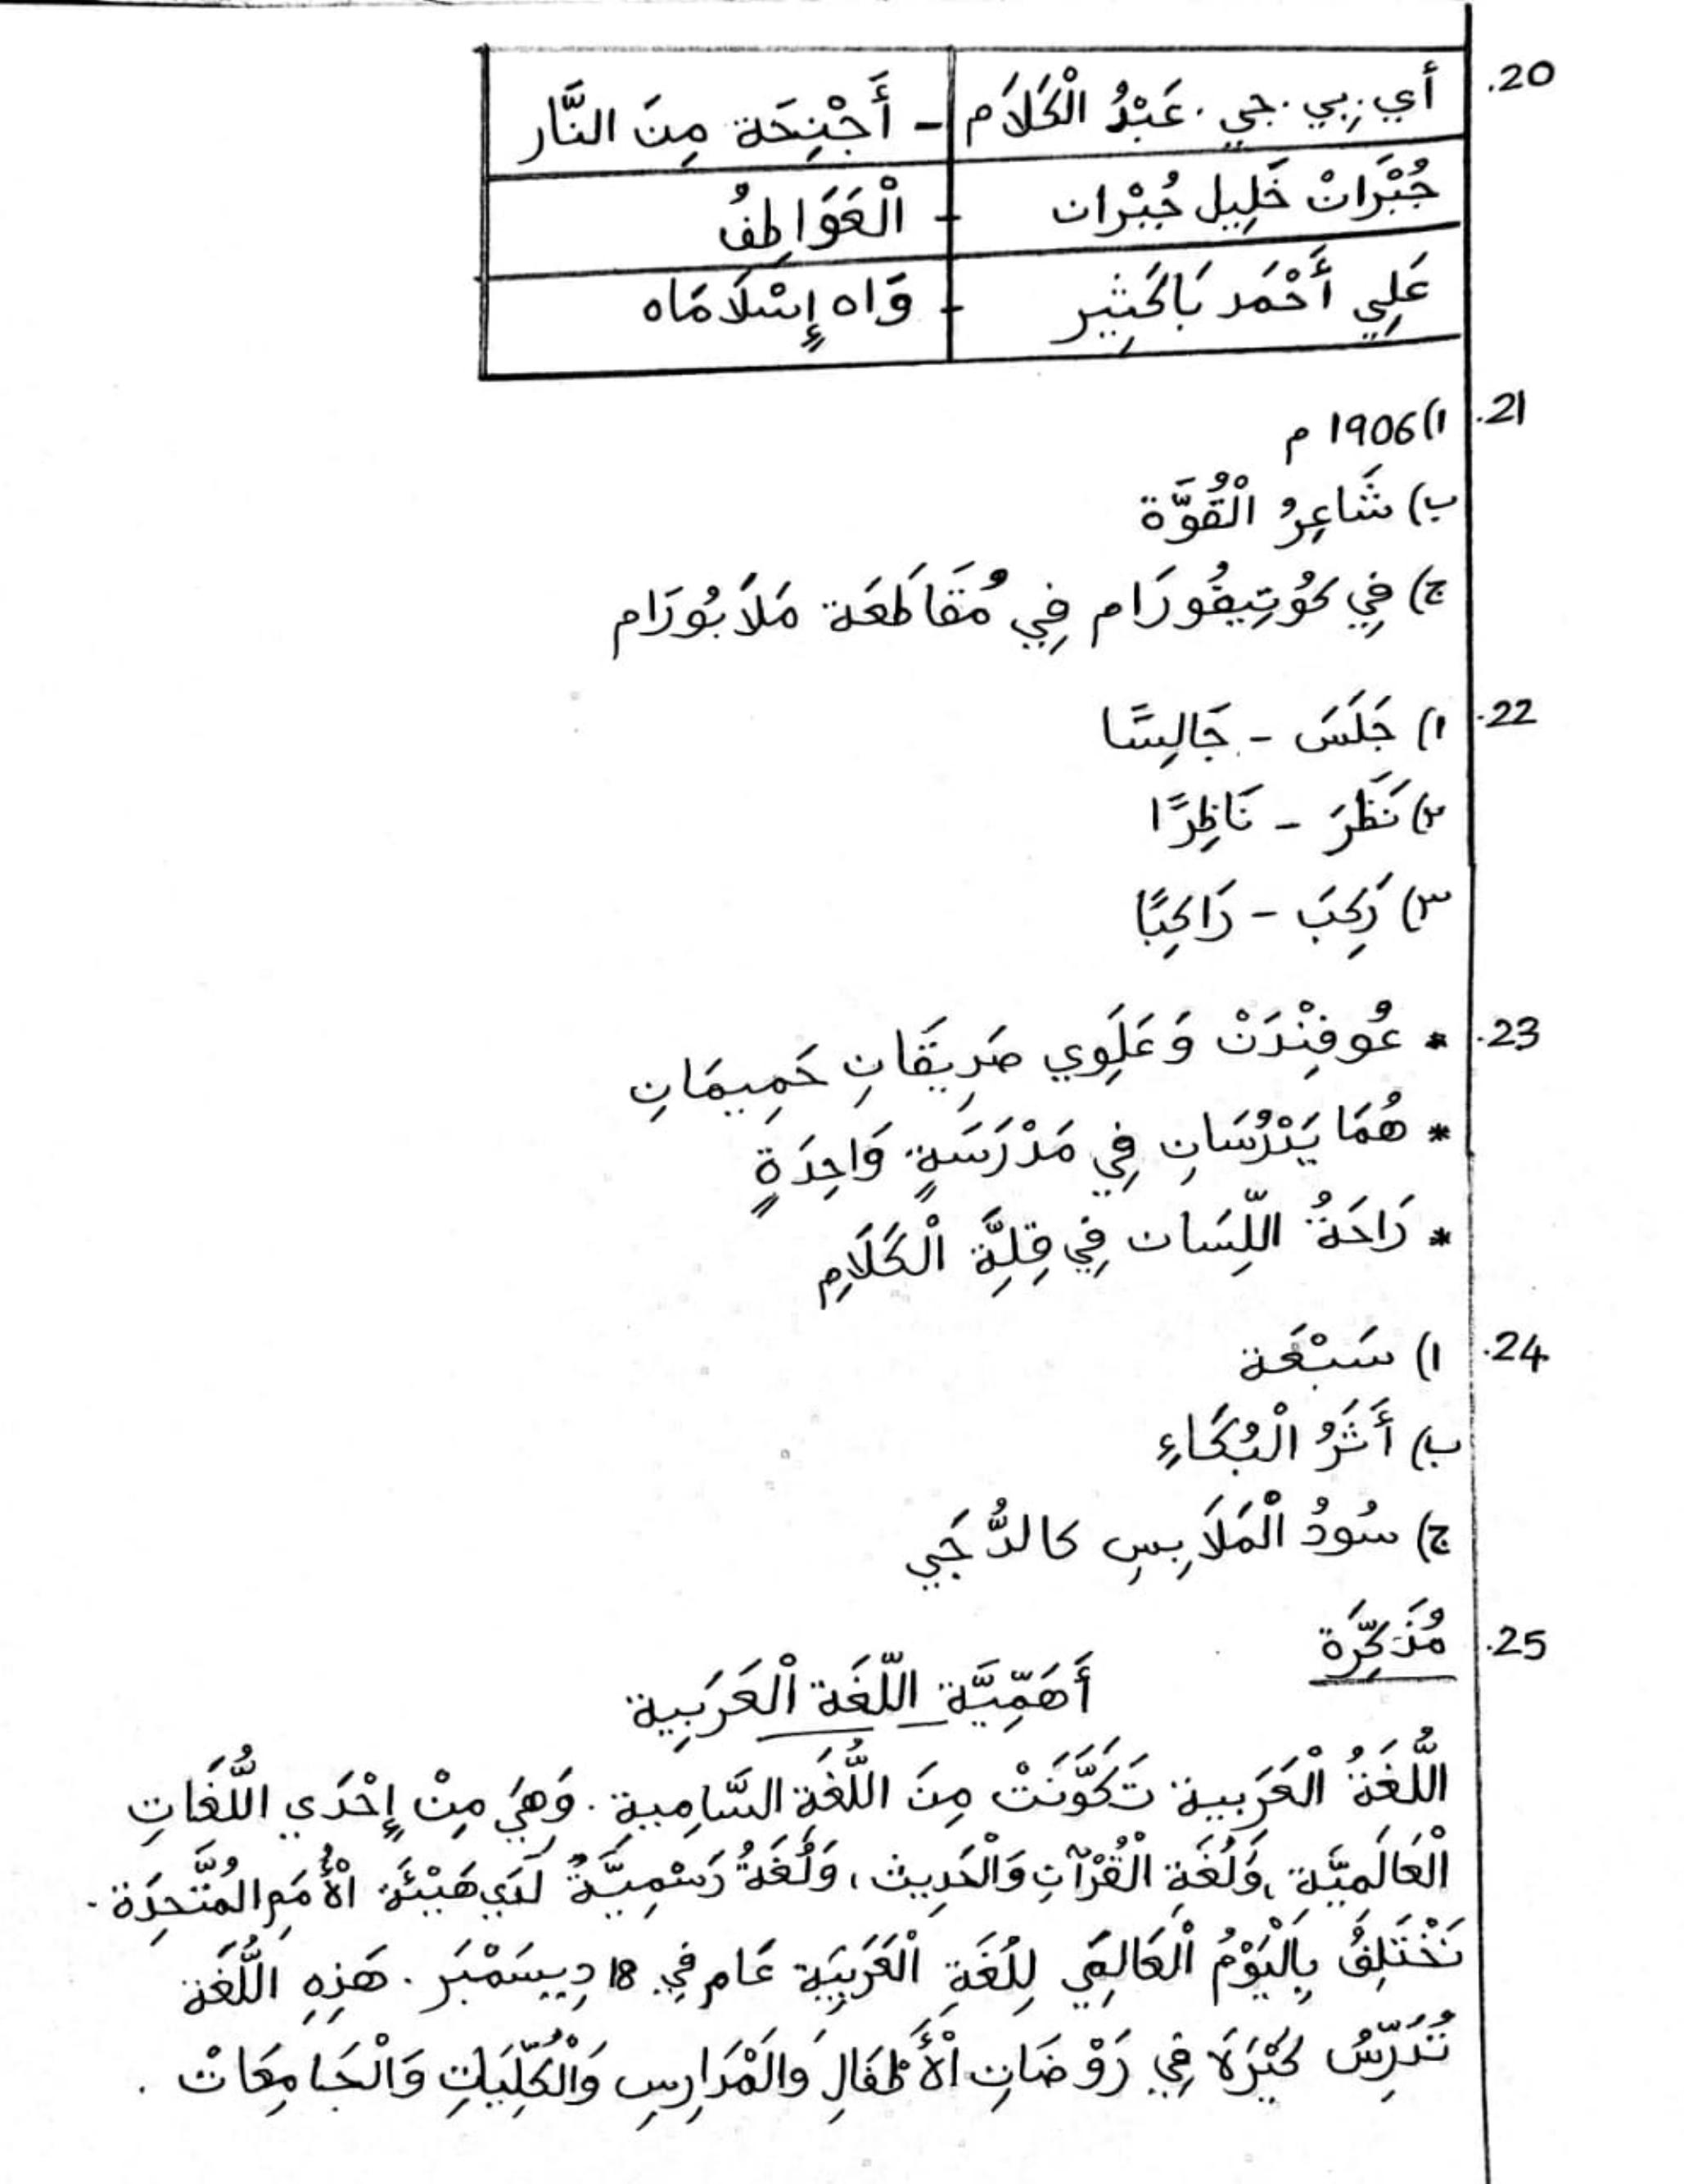 20. أي. بي. جي. عَبْدُ الْكَلَام - أَجْنِحَة مِنَ النَّار
جُبْرَانْ خَلِيل جُبْران - الْعَوَاطِفُ
عَلِي أَحْمَد بَاكَثِير - وَاه إِسْلَامَاه
21. ا) 1906 م
ب) شَاعِرُ الْقُوَّة
ج) فِي كُوتِيفُورَام فِي مُقَاطَعَة مَلَابُورَام
22. ١) جَلَسَ - جَالِسًا
٢) نَظَرَ - نَاظِرًا
٣) رَكِبَ - رَاكِبًا
23. * عُوفِنْدَنْ وَعَلَوِي صَدِيقَانِ حَمِيمَانِ
* هُمَا يَدْرُسَانِ فِي مَدْرَسَةٍ وَاحِدَةٍ
* رَاحَةُ اللِّسَان فِي قِلَّةِ الْكَلَامِ
24. ا) سَبْعَة
ب) أَثَرُ الْبُكَاءِ
ج) سُودُ الْمَلَابِسِ كالدُّجَي
25. مُذَكِّرَة
أَهَمِّيَّة اللّغَة الْعَرَبِية
اللُّغَةُ الْعَرَبِية تَكَوَّنَتْ مِنَ اللُّغَة السَّامِية. وَهِيَ مِنْ إِحْدَي اللُّغَاتِ
الْعَالَمِيَّة، وَلُغَةِ الْقُرْآنِ وَالْحَدِيث، وَلُغَةُ رَسْمِيَّةُ لَدَي هَيْئَة الْأُمَمِ الْمُتَّحِدَة.
نَخْتَلِفُ بِالْيَوْمُ الْعَالَمِي لِلُغَةِ الْعَرَبِيَة عَام فِي 18 دِيسَمْبَر. هَذِهِ اللُّغَة
تُدَرِّسُ كَثِرَة فِي رَوْضَاتِ الْأَطْفَالِ وَالْمَدَارِسِ وَالْكُلِّيَاتِ وَالْجَامِعَاتْ.